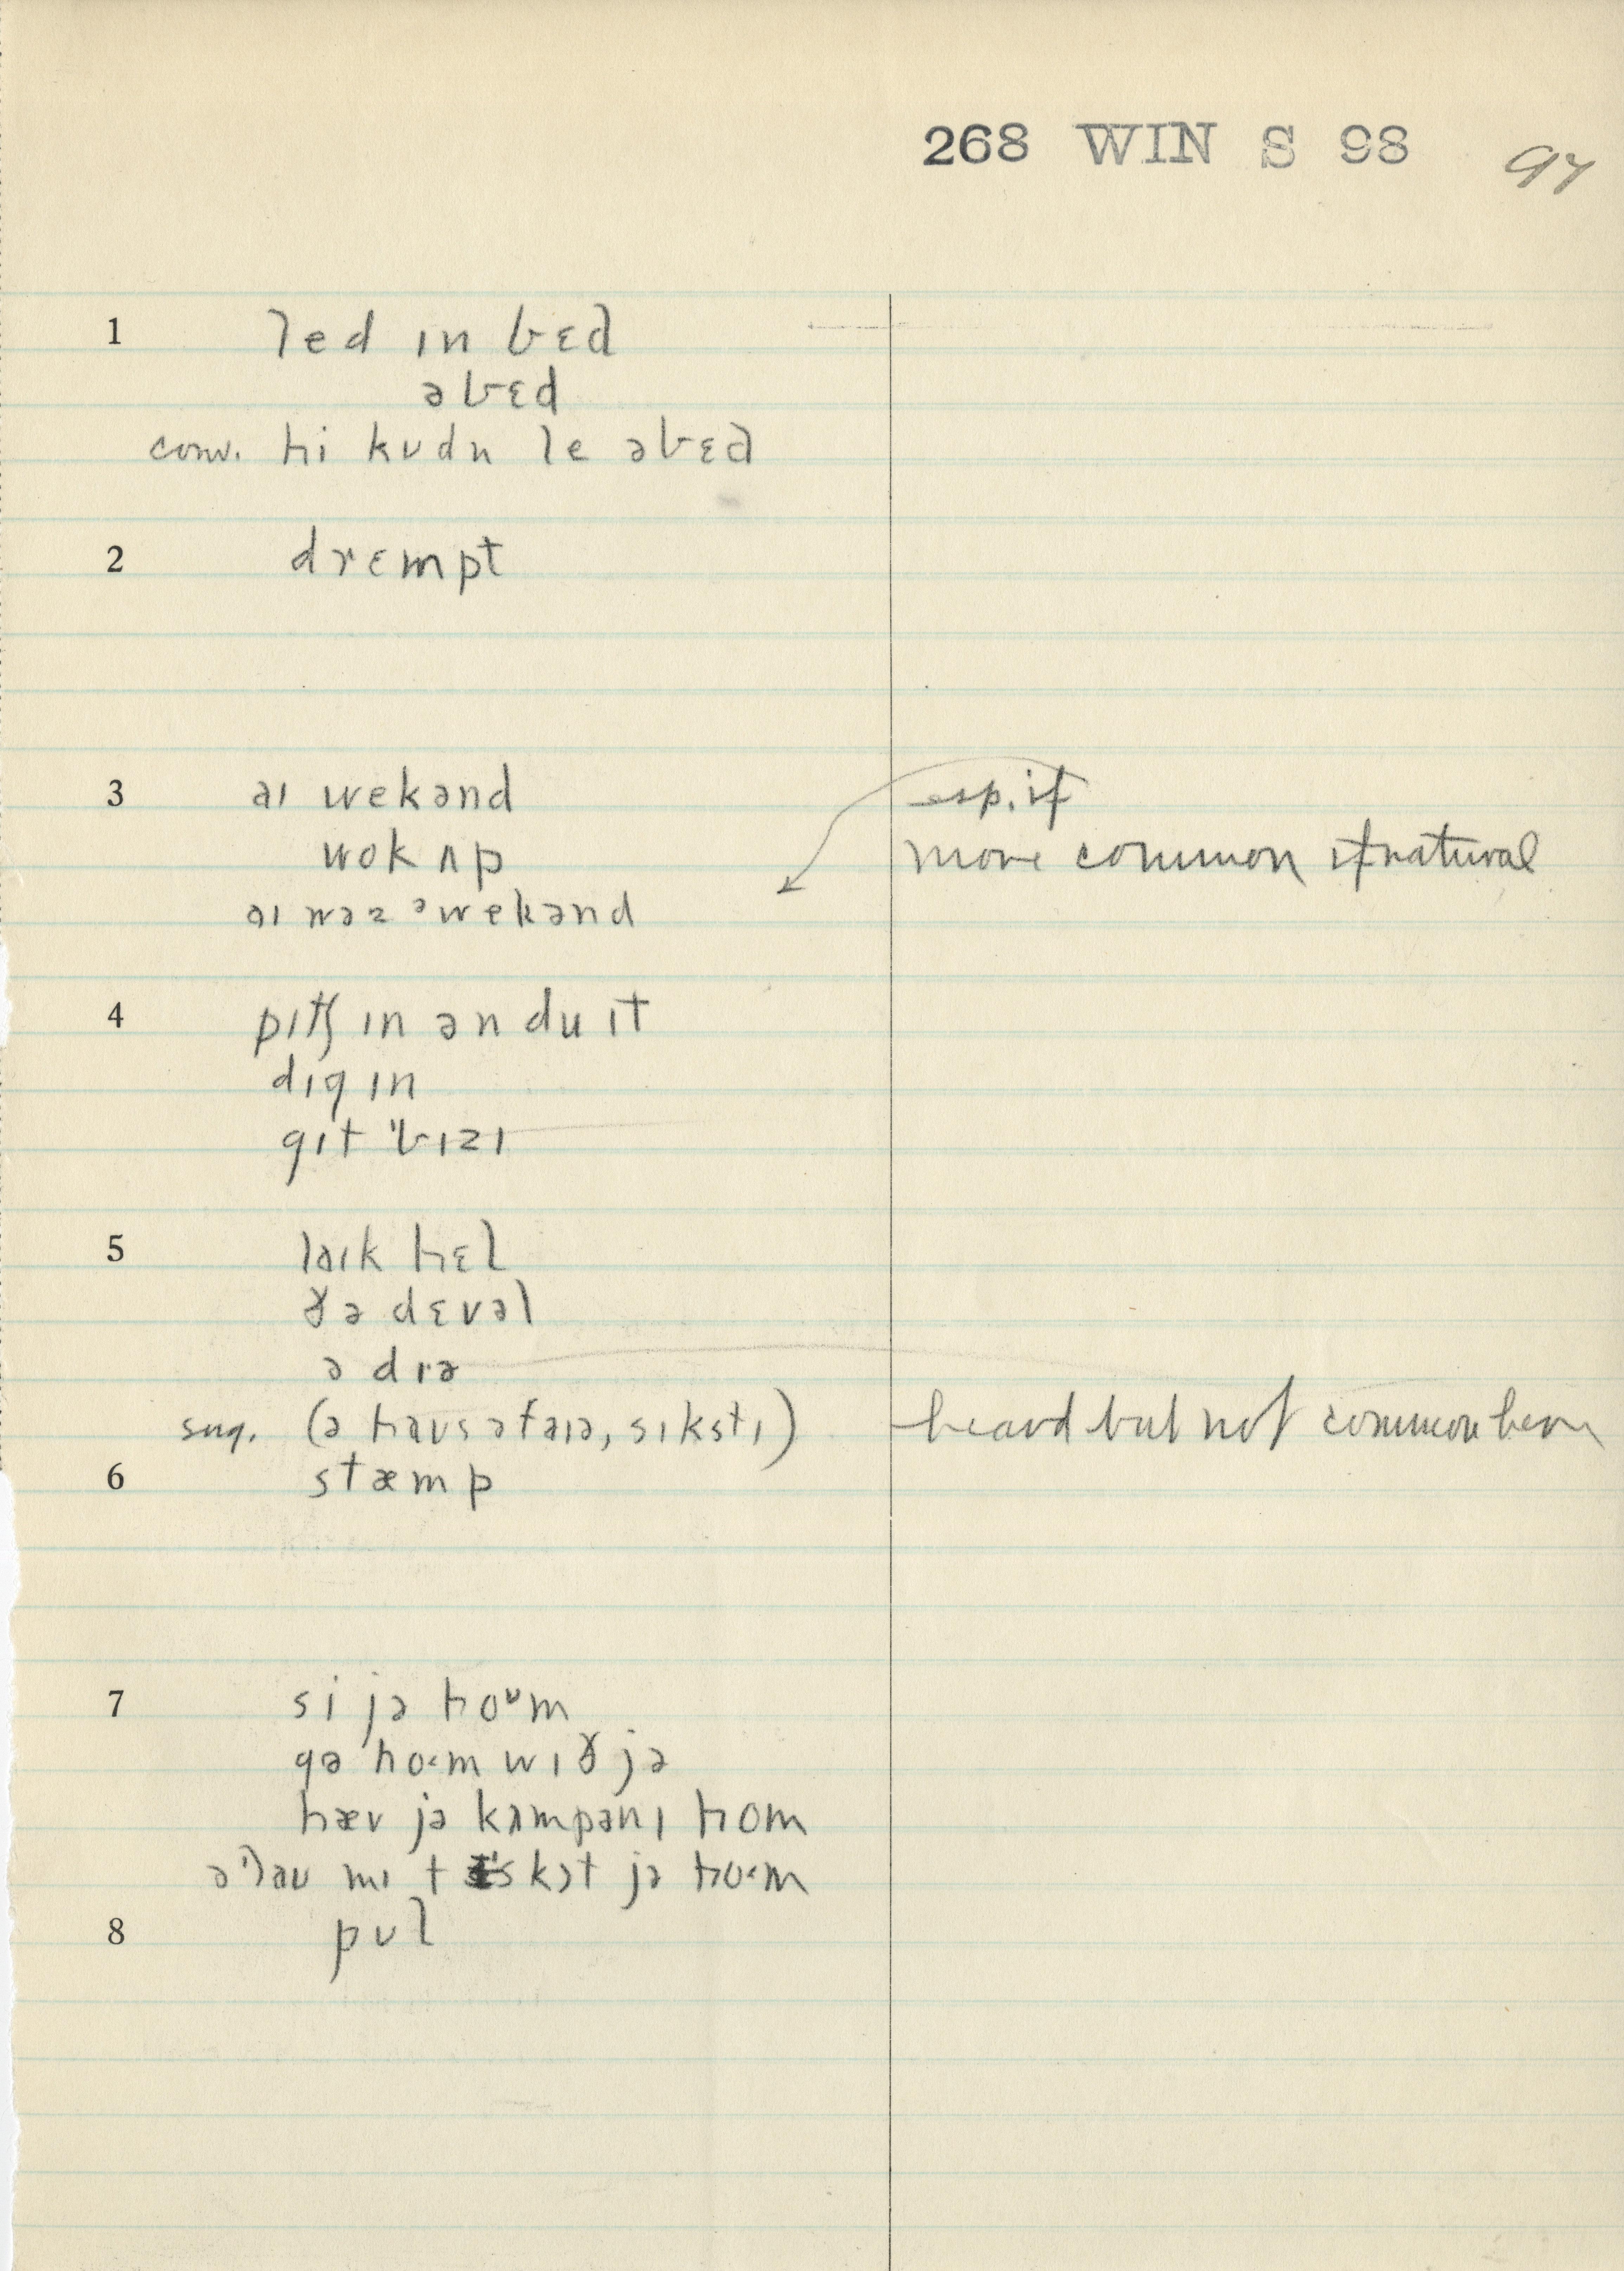 268 WIN S 98 97
1 led ɪn bɛd
ə bɛd
conv. hi kʊdn le əbɛd
2 drɛmpt
3 aɪ wekənd esp. if
wok ʌp more common if natural
aɪ wəz ᵊwekənd
4 pɪtʃ ɪn ən du ɪt
dɪg ɪn
gɪt 'bɪzɪ
5 laɪk hɛl
ðə dɛvəl
ə dɪə
sug. (ə haʊs əfaɪə, sɪkstɪ) heard but not common here
6 stæmp
7 si jə hoᶷm
gə ho·m wɪð jə
hæv jə kʌmpənɪ hom
ə'laʊ mɪ t skɔt jə ho·m
8 pʊl